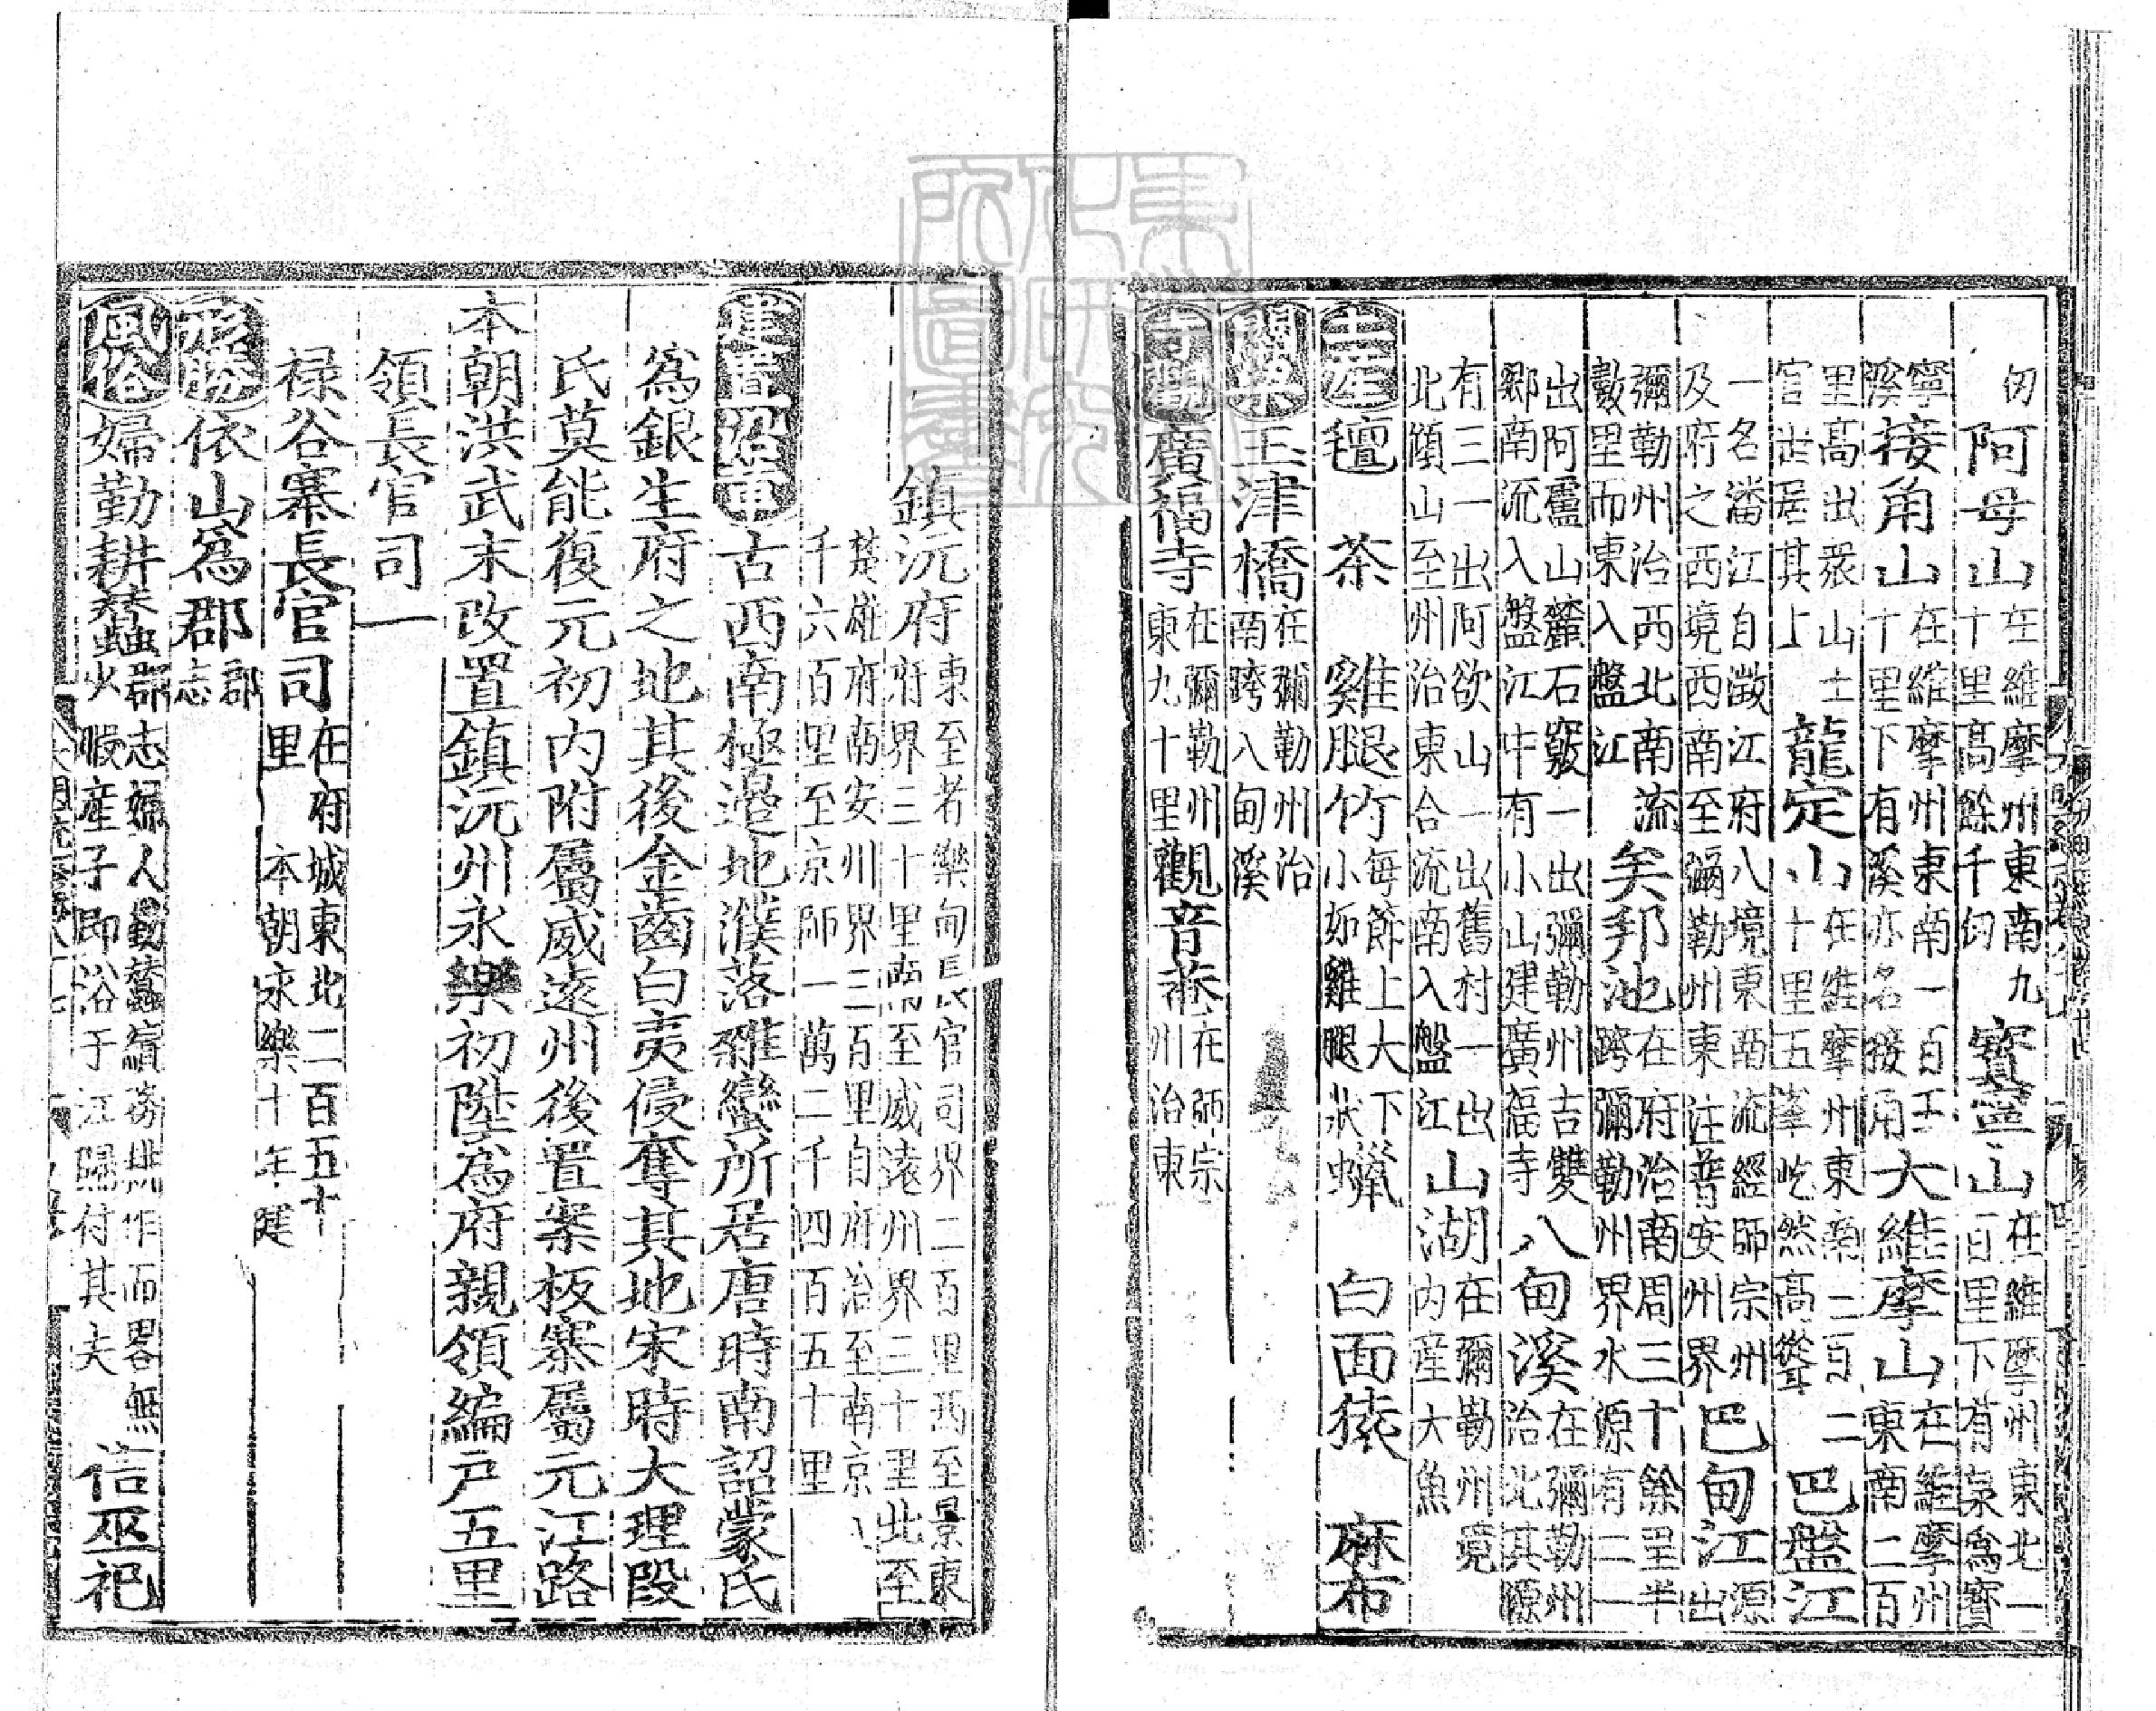 仞阿母山在維摩州東南九十里高餘千仞寶寧山在維摩州東北一百里下有泉為寶
寧溪接角山在維摩州東南一百五十里下有溪亦名接角大維摩山在維摩州東南二百
里高出眾山土官世居其上龍定山在維摩州東南二百二十里五峯屹然高聳巴盤江
一名潘江自澂江府入境東南流經師宗州及府之西境西南至彌勒州東注普安州界巴甸江源出
彌勒州治西北南流數里而東入盤江矣邦池在府治南周三十餘里半跨彌勒州界水源有二一
出阿盧山麓石竅一出彌勒州吉雙鄉南流入盤江中有小山建廣福寺八甸溪在彌勒州治北其源
有三一出阿欲山一出舊村一出北傾山至州治東合流南入盤江山湖在彌勒州境內産大魚
土産氊 茶 雞腿竹每節上大下小如雞腿狀蠟 白面猿 麻布
關梁玉津橋在彌勒州治南跨八甸溪
寺觀廣福寺在彌勒州東九十里觀音菴在師宗州治東
鎮沅府東至者樂甸長官司界二百里西至景東府界三十里南至威遠州界三十里北至
楚雄府南安州界三百里自府治至南京八千六百里至京師一萬二千四百五十里
建置沿革古西南極邊地濮落雜蠻所居唐時南詔蒙氏
為銀生府之地其後金齒白夷侵奪其地宋時大理段
氏莫能復元初內附屬威遠州後置案板寨屬元江路
本朝洪武末改置鎮沅州永樂初陞為府親領編户五里
領長官司一
禄谷寨長官司在府城東北二百五十里本朝永樂十年建
形勝依山為郡郡志
風俗婦勤耕蠶郡志婦人勤蠶績務耕作而畧無少暇産子即浴于江歸付其夫信巫祀